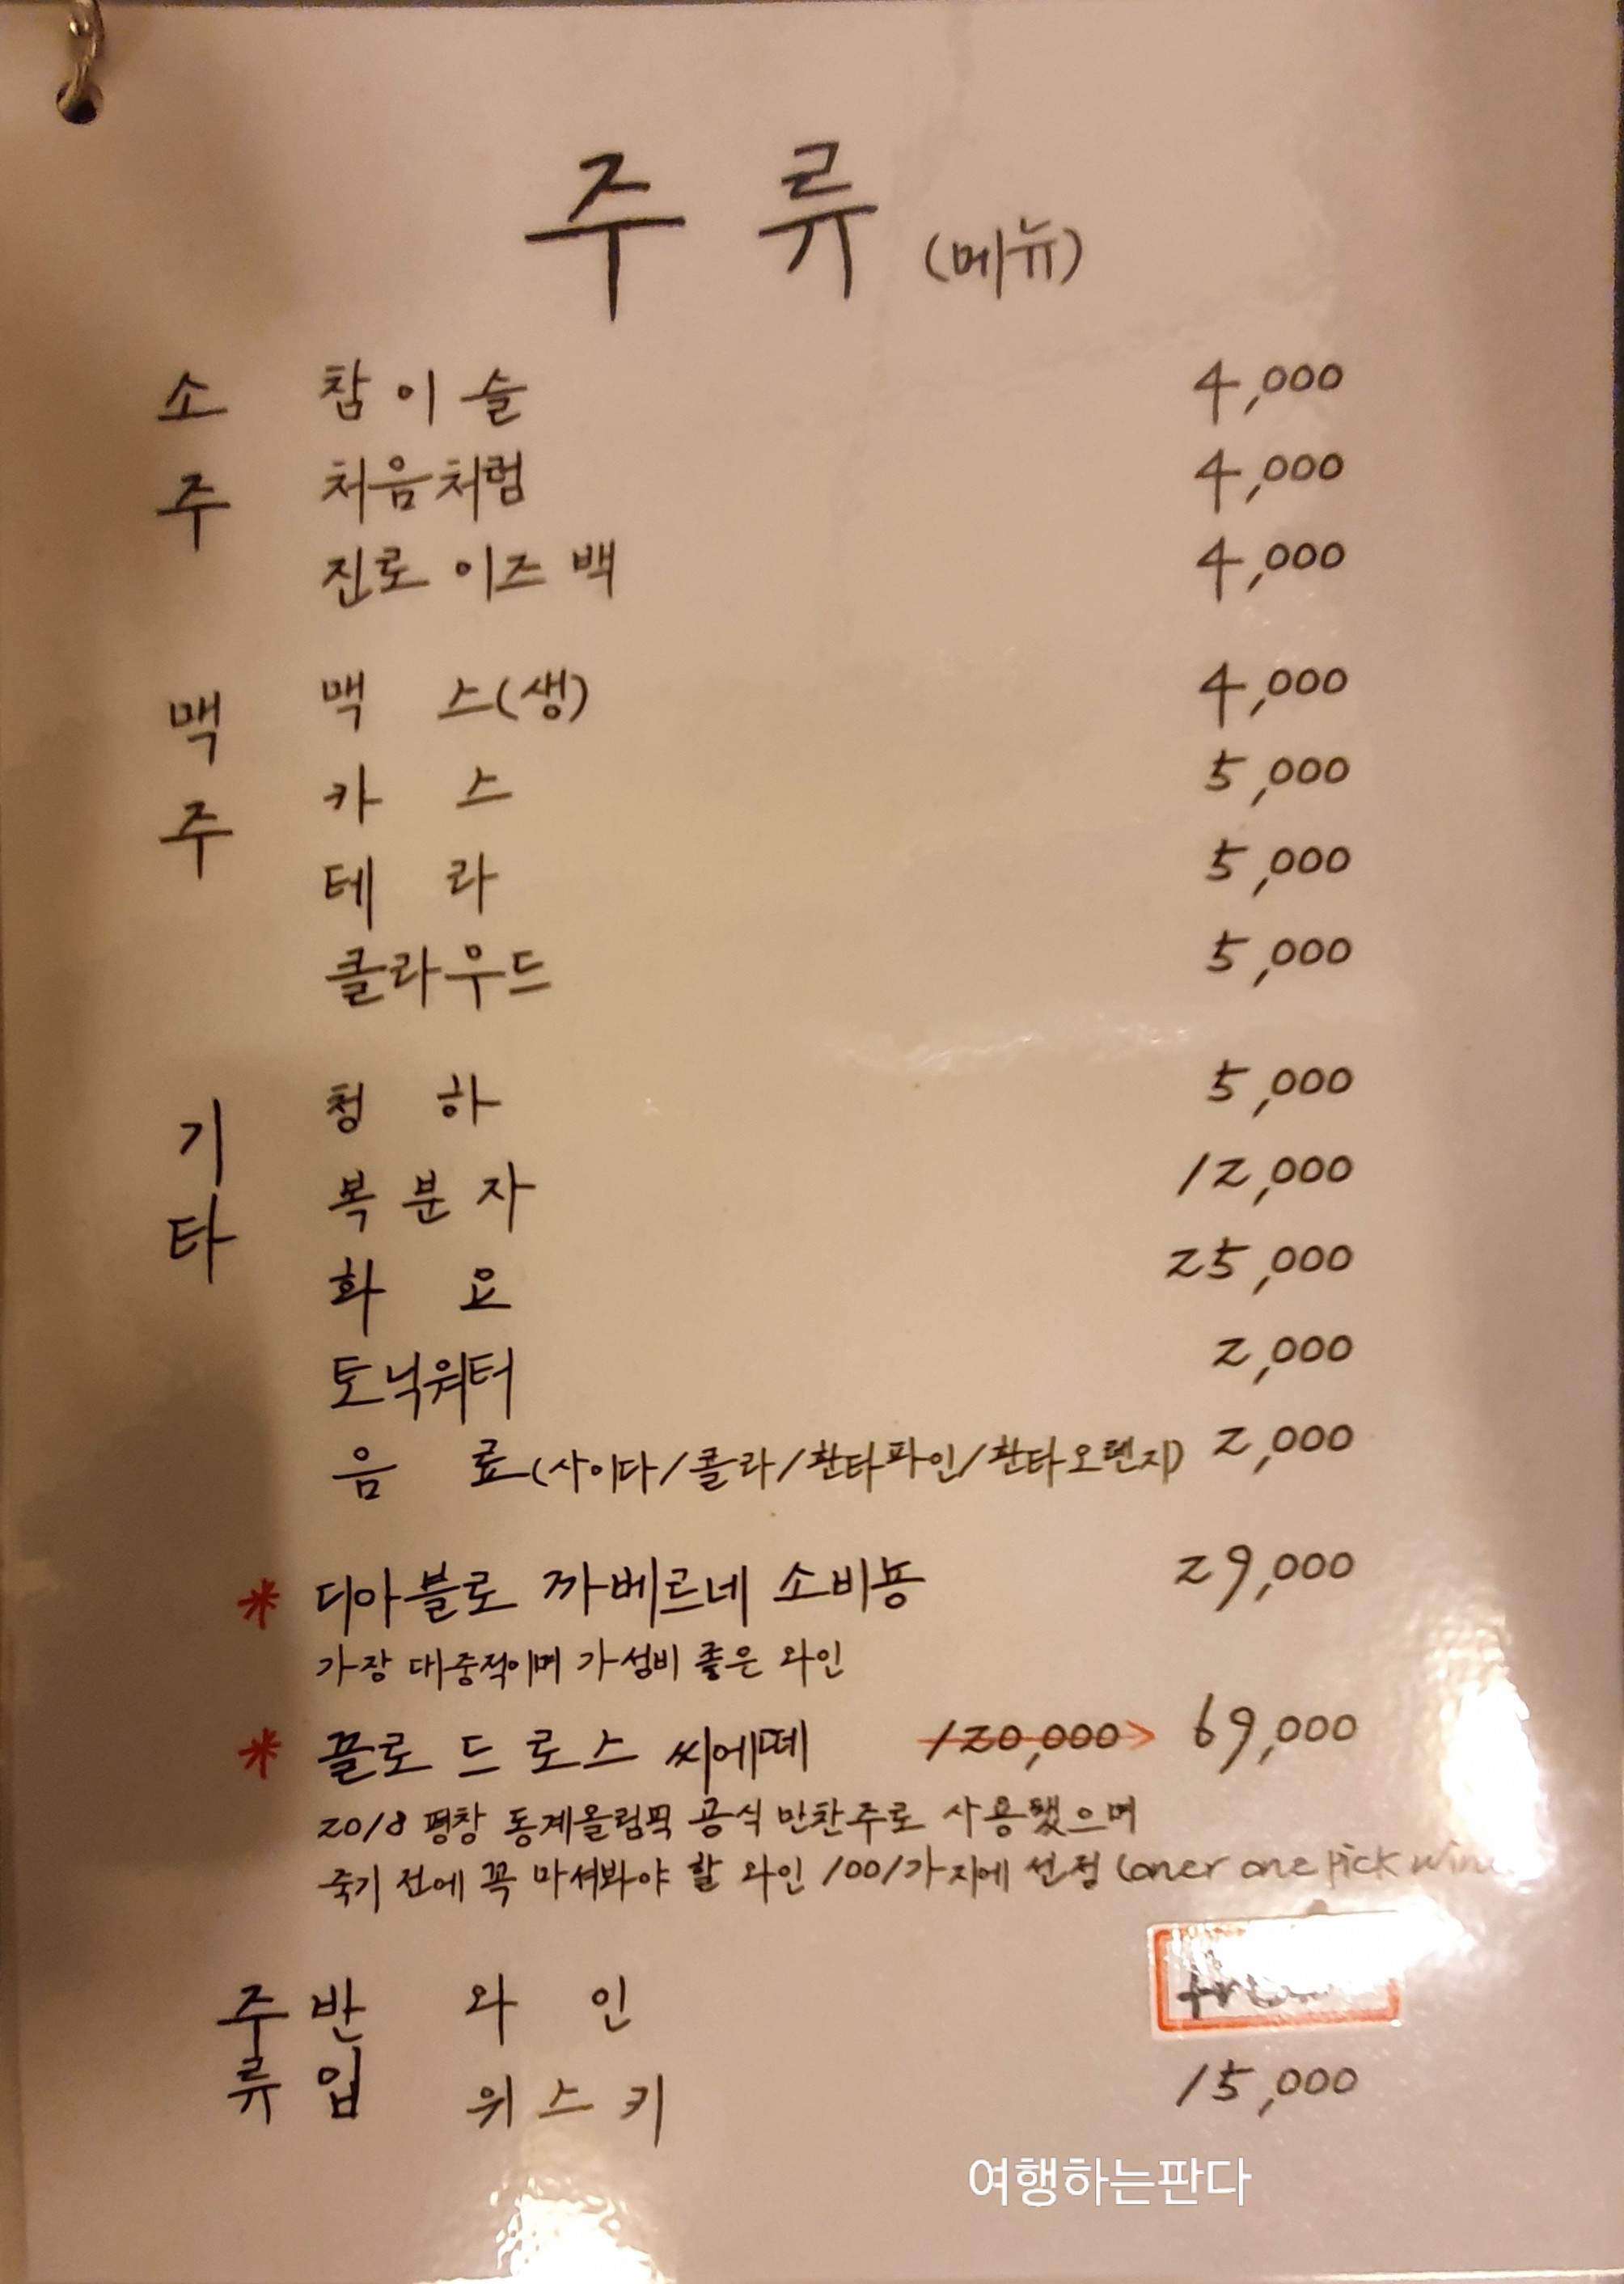 주류 (메뉴)
소주
참이슬 4,000
처음처럼 4,000
진로 이즈 백 4,000
맥주
맥스(생) 4,000
카스 5,000
테라 5,000
클라우드 5,000
기타
청하 5,000
복분자 12,000
화요 25,000
토닉워터 2,000
음료(사이다/콜라/환타파인/환타오렌지) 2,000
* 디아블로 까베르네 소비뇽 29,000
가장 대중적이며 가성비 좋은 와인
* 끌로 드 로스 씨에떼 120,000> 69,000
2018 평창 동계올림픽 공식 만찬주로 사용됐으며
죽기 전에 꼭 마셔봐야 할 와인 1001가지에 선정 (oner one pick
주류 반입
와인
위스키 15,000
여행하는판다